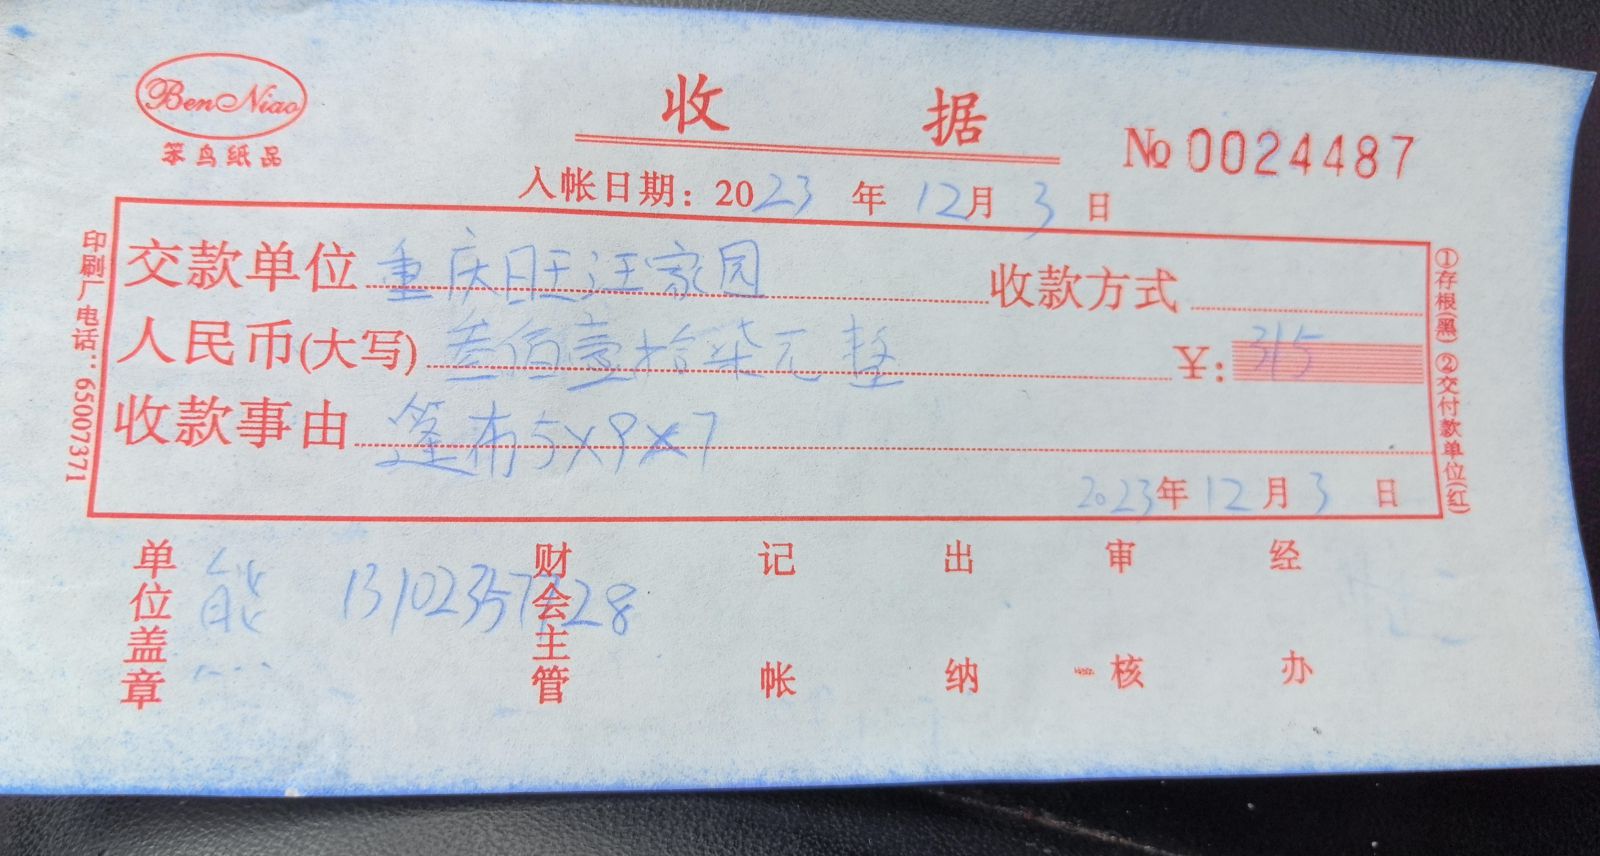 Ben Niao
笨鸟纸品
收据
№ 0024487
入帐日期：2023年12月3日
交款单位 重庆旺汪家园 收款方式
人民币(大写) 叁佰壹拾柒元整 ¥: 315
收款事由 篷布5×9×7
2023年12月3日
印刷厂电话：65007371
①存根(黑) ②交付款单位(红)
单位盖章 熊 13102357728 财会主管 记帐 出纳 审核 经办